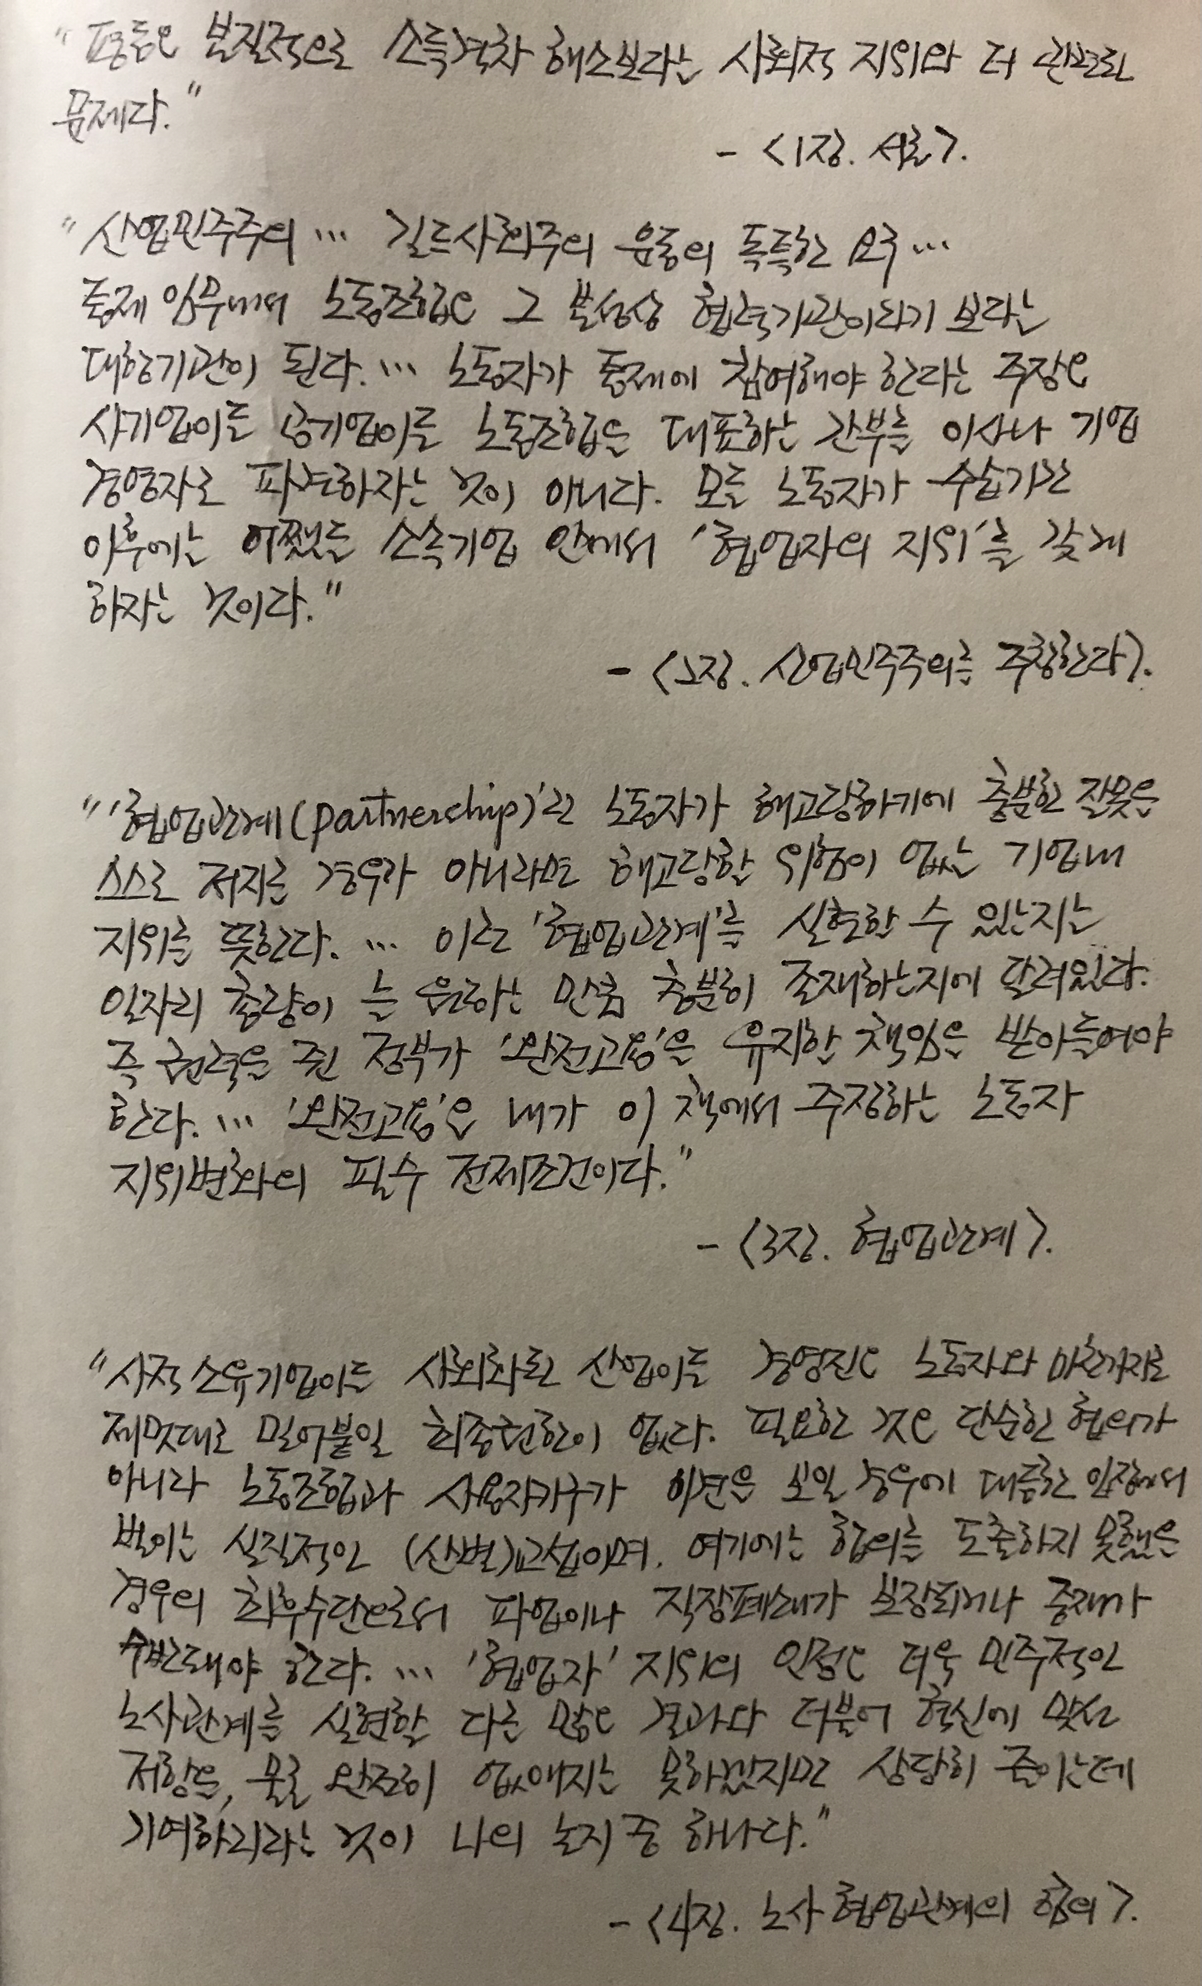 "평등은 본질적으로 소득격차 해소보다는 사회적 지위와 더 관련된
문제다."
- <1장. 서론>.
"산업민주주의 … 길드사회주의 운동의 독특한 요구 …
통제 임무에서 노동조합은 그 본성상 협력기관이라기 보다는
대항기관이 된다. … 노동자가 통제에 참여해야 한다는 주장은
사기업이든 공기업이든 노동조합을 대표하는 간부를 이사나 기업
경영자로 파견하자는 것이 아니다. 모든 노동자가 수습기간
이후에는 어쨌든 소속기업 안에서 '협업자의 지위'를 갖게
하자는 것이다."
- <2장. 산업민주주의를 주창한다>.
"'협업관계(partnership)'란 노동자가 해고당하기에 충분한 잘못을
스스로 저지른 경우가 아니라면 해고당할 위험이 없는 기업내
지위를 뜻한다. … 이런 '협업관계'를 실현할 수 있는지는
일자리 총량이 늘 원하는 만큼 충분히 존재하는지에 달려있다.
즉 권력을 쥔 정부가 '완전고용'을 유지할 책임을 받아들여야
한다. … '완전고용'은 내가 이 책에서 주장하는 노동자
지위변화의 필수 전제조건이다."
- <3장. 협업관계>.
"사적 소유기업이든 사회화된 산업이든 경영진은 노동자와 마찬가지로
제멋대로 밀어붙일 최종권한이 없다. 필요한 것은 단순한 협의가
아니라 노동조합과 사용자기구가 이견을 보일 경우에 대등한 입장에서
벌이는 실질적인 (산별)교섭이며, 여기에는 합의를 도출하지 못했을
경우의 최후수단으로서 파업이나 직장폐쇄가 보장되거나 중재가
수반돼야 한다. … '협업자' 지위의 인정은 더욱 민주적인
노사관계를 실현할 다른 많은 결과와 더불어 혁신에 맞선
저항을, 물론 완전히 없애지는 못하겠지만 상당히 줄이는데
기여하리라는 것이 나의 논지 중 하나다."
- <4장. 노사 협업관계의 함의>.